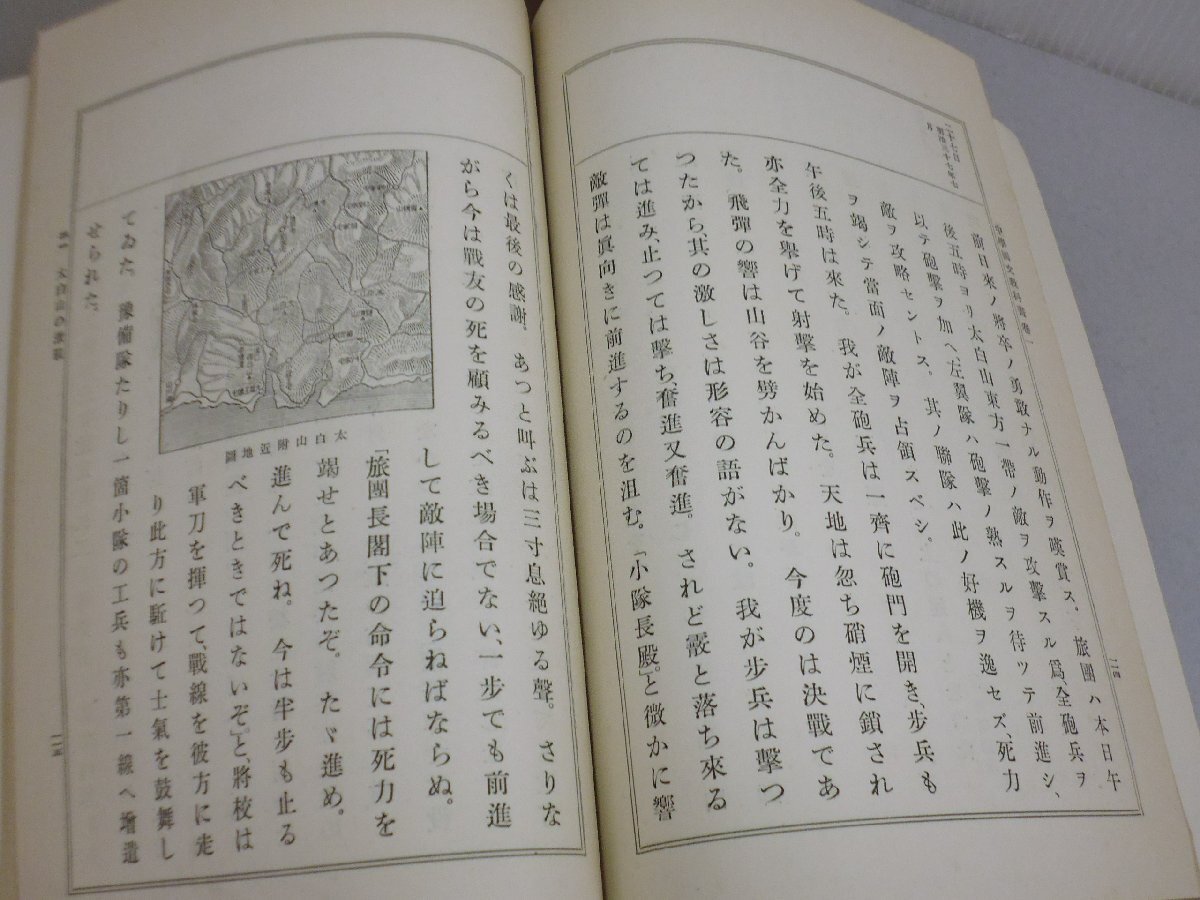 二十七日
明治三十七年七月
中學國文教科書卷一
二四
前日來ノ將卒ノ勇敢ナル動作ヲ嘆賞ス、旅團ハ本日午
後五時ヨリ太白山東方一帶ノ敵ヲ攻撃スル爲、全砲兵ヲ
以テ砲撃ヲ加ヘ、左翼隊ハ砲撃ノ熟スルヲ待ツテ前進シ、
敵ヲ攻略セントス、其ノ聯隊ハ此ノ好機ヲ逸セズ、死力
ヲ竭シテ當面ノ敵陣ヲ占領スベシ。
午後五時は來た。我が全砲兵は一齊に砲門を開き、歩兵も
亦全力を擧げて射撃を始めた。天地は忽ち硝煙に鎖され
た。飛彈の響は山谷を劈かんばかり。今度のは決戰であ
つたから、其の激しさは形容の語がない。我が歩兵は撃つ
ては進み、止つては撃ち、奮進又奮進。されど霰と落ち來る
敵彈は眞向きに前進するのを沮む。「小隊長殿。」と微かに響
くは最後の感謝。あつと叫ぶは三寸息絶ゆる聲。さりな
がら今は戰友の死を顧みるべき場合でない、一歩でも前進
して敵陣に迫らねばならぬ。
「旅團長閣下の命令には死力を
竭せとあつたぞ。たゞ進め。
進んで死ね。今は半歩も止る
べきときではないぞ。」と、將校は
軍刀を揮つて、戰線を彼方に走
り此方に駈けて士氣を鼓舞し
太白山附近地圖
てゐた。豫備隊たりし一箇小隊の工兵も亦第一線へ增遣
せられた。
太白山の激戰
二五